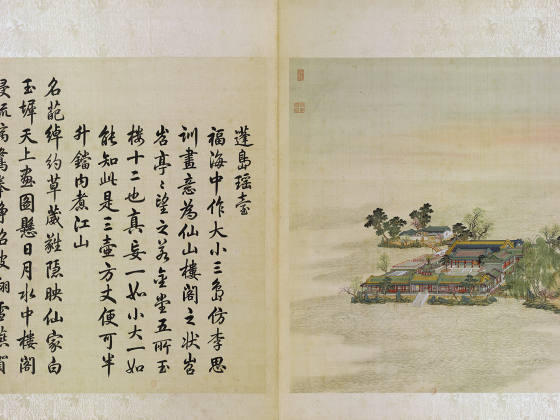 蓬島瑤臺
福海中作大小三島仿李思
訓畫意為仙山樓閣之狀岧
岧亭〻望之若金堂五所玉
樓十二也真妄一如小大一如
能知此是三壺方丈便可半
升鐺內煮江山
名葩綽約草葳蕤隱映仙家白
玉墀天上畫圖懸日月水中樓閣
浸琉璃鷺拳淨沼波翻雪燕賀